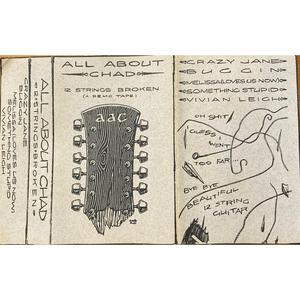 ALL ABOUT CHAD
12 STRINGS BROKEN
CRAZY JANE
BUGGIN
MELISSA LOVES US NOW
SOMETHING STUPID
VIVIAN LEIGH
ALL ABOUT
CHAD
12 STRINGS BROKEN
(A DEMO TAPE)
aac
CRAZY JANE
BUGGIN
MELISSA (LOVES US NOW)
SOMETHING STUPID
VIVIAN LEIGH
OH SHIT
I GUESS
I WENT
TOO FAR
BYE BYE
BEAUTIFUL
12 STRING
GUITAR